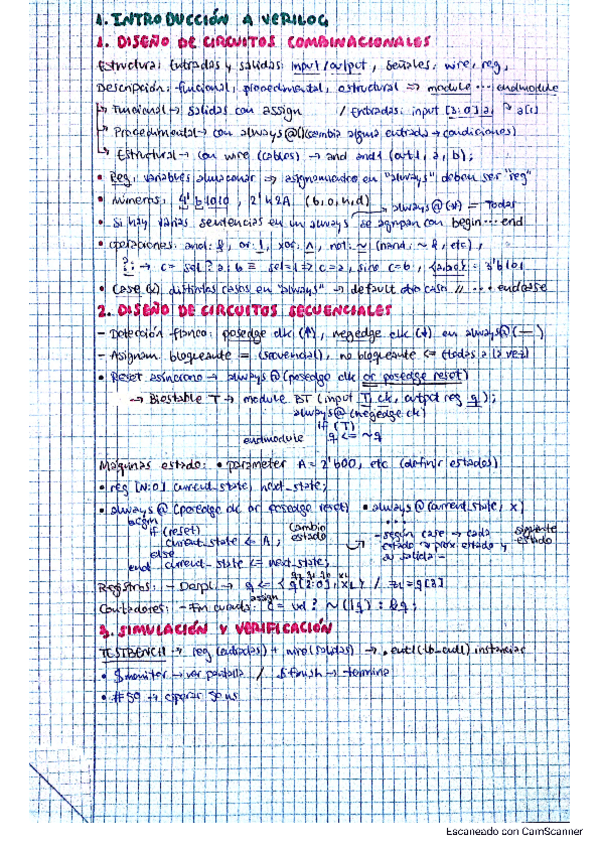 1. INTRODUCCIÓN A VERILOG
1. DISEÑO DE CIRCUITOS COMBINACIONALES
Estructura: Entradas y salidas: input/output, señales: wire, reg,
Descripción: funcional, procedimental, estructural ⇒ module ... endmodule
↳ Funcional → salidas con assign / Entradas: input [3:0] a; → a[i]
↳ Procedimental → con always@()(cambia alguna entrada → condiciones)
↳ Estructural → con wire (cables) → and and1 (out1, a, b);
• Reg: variables almacenar ⇒ asignamientos en "always" deben ser "reg"
• números: 4'b1010, 2'h2A (b,o,h,d) always@(*) = Todas
• Si hay varias sentencias en un always se agrupan con begin...end
• operaciones: and: &, or: |, xor: ^, not: ~ (nand: ~&, etc),
?: → c = sel? a:b ≡ sel=1 ⇒ c=a, sino c=b, {a,b,c} = 3'b101
• Case (x) distintos casos en "always" → default otro caso // ... endcase
2. DISEÑO DE CIRCUITOS SECUENCIALES
- Detección flanco: posedge clk (↑), negedge clk (↓) en always@(—)
- Asignam. bloqueante = (secuencial), no bloqueante <= (todas a la vez)
• Reset asíncrono → always@(posedge clk or posedge reset)
→ Biestable T → module BT (input T, ck, output reg q);
always@(negedge ck)
if (T)
q <= ~q
endmodule
Máquinas estado: • parameter A = 2'b00, etc (definir estados)
• reg [N:0] current_state, next_state;
• always@(posedge clk or posedge reset) • always@(current_state, x)
begin
if (reset) Cambio estado
current_state <= A;
else
current_state <= next_state;
end
- según case → cada estado → prox. estado y salida - siguiente estado
Registros: - Despl → q <= {q[2:0], xi} / zi = q[3]
Contadores: - En cuado: assign c = ud ? ~(|q) : &q;
3. SIMULACIÓN Y VERIFICACIÓN
TESTBENCH → reg (entradas) + wire (salidas) → instanciar
• $monitor → ver pantalla / $finish → termina
• #50 → esperar 50ns
Escaneado con CamScanner